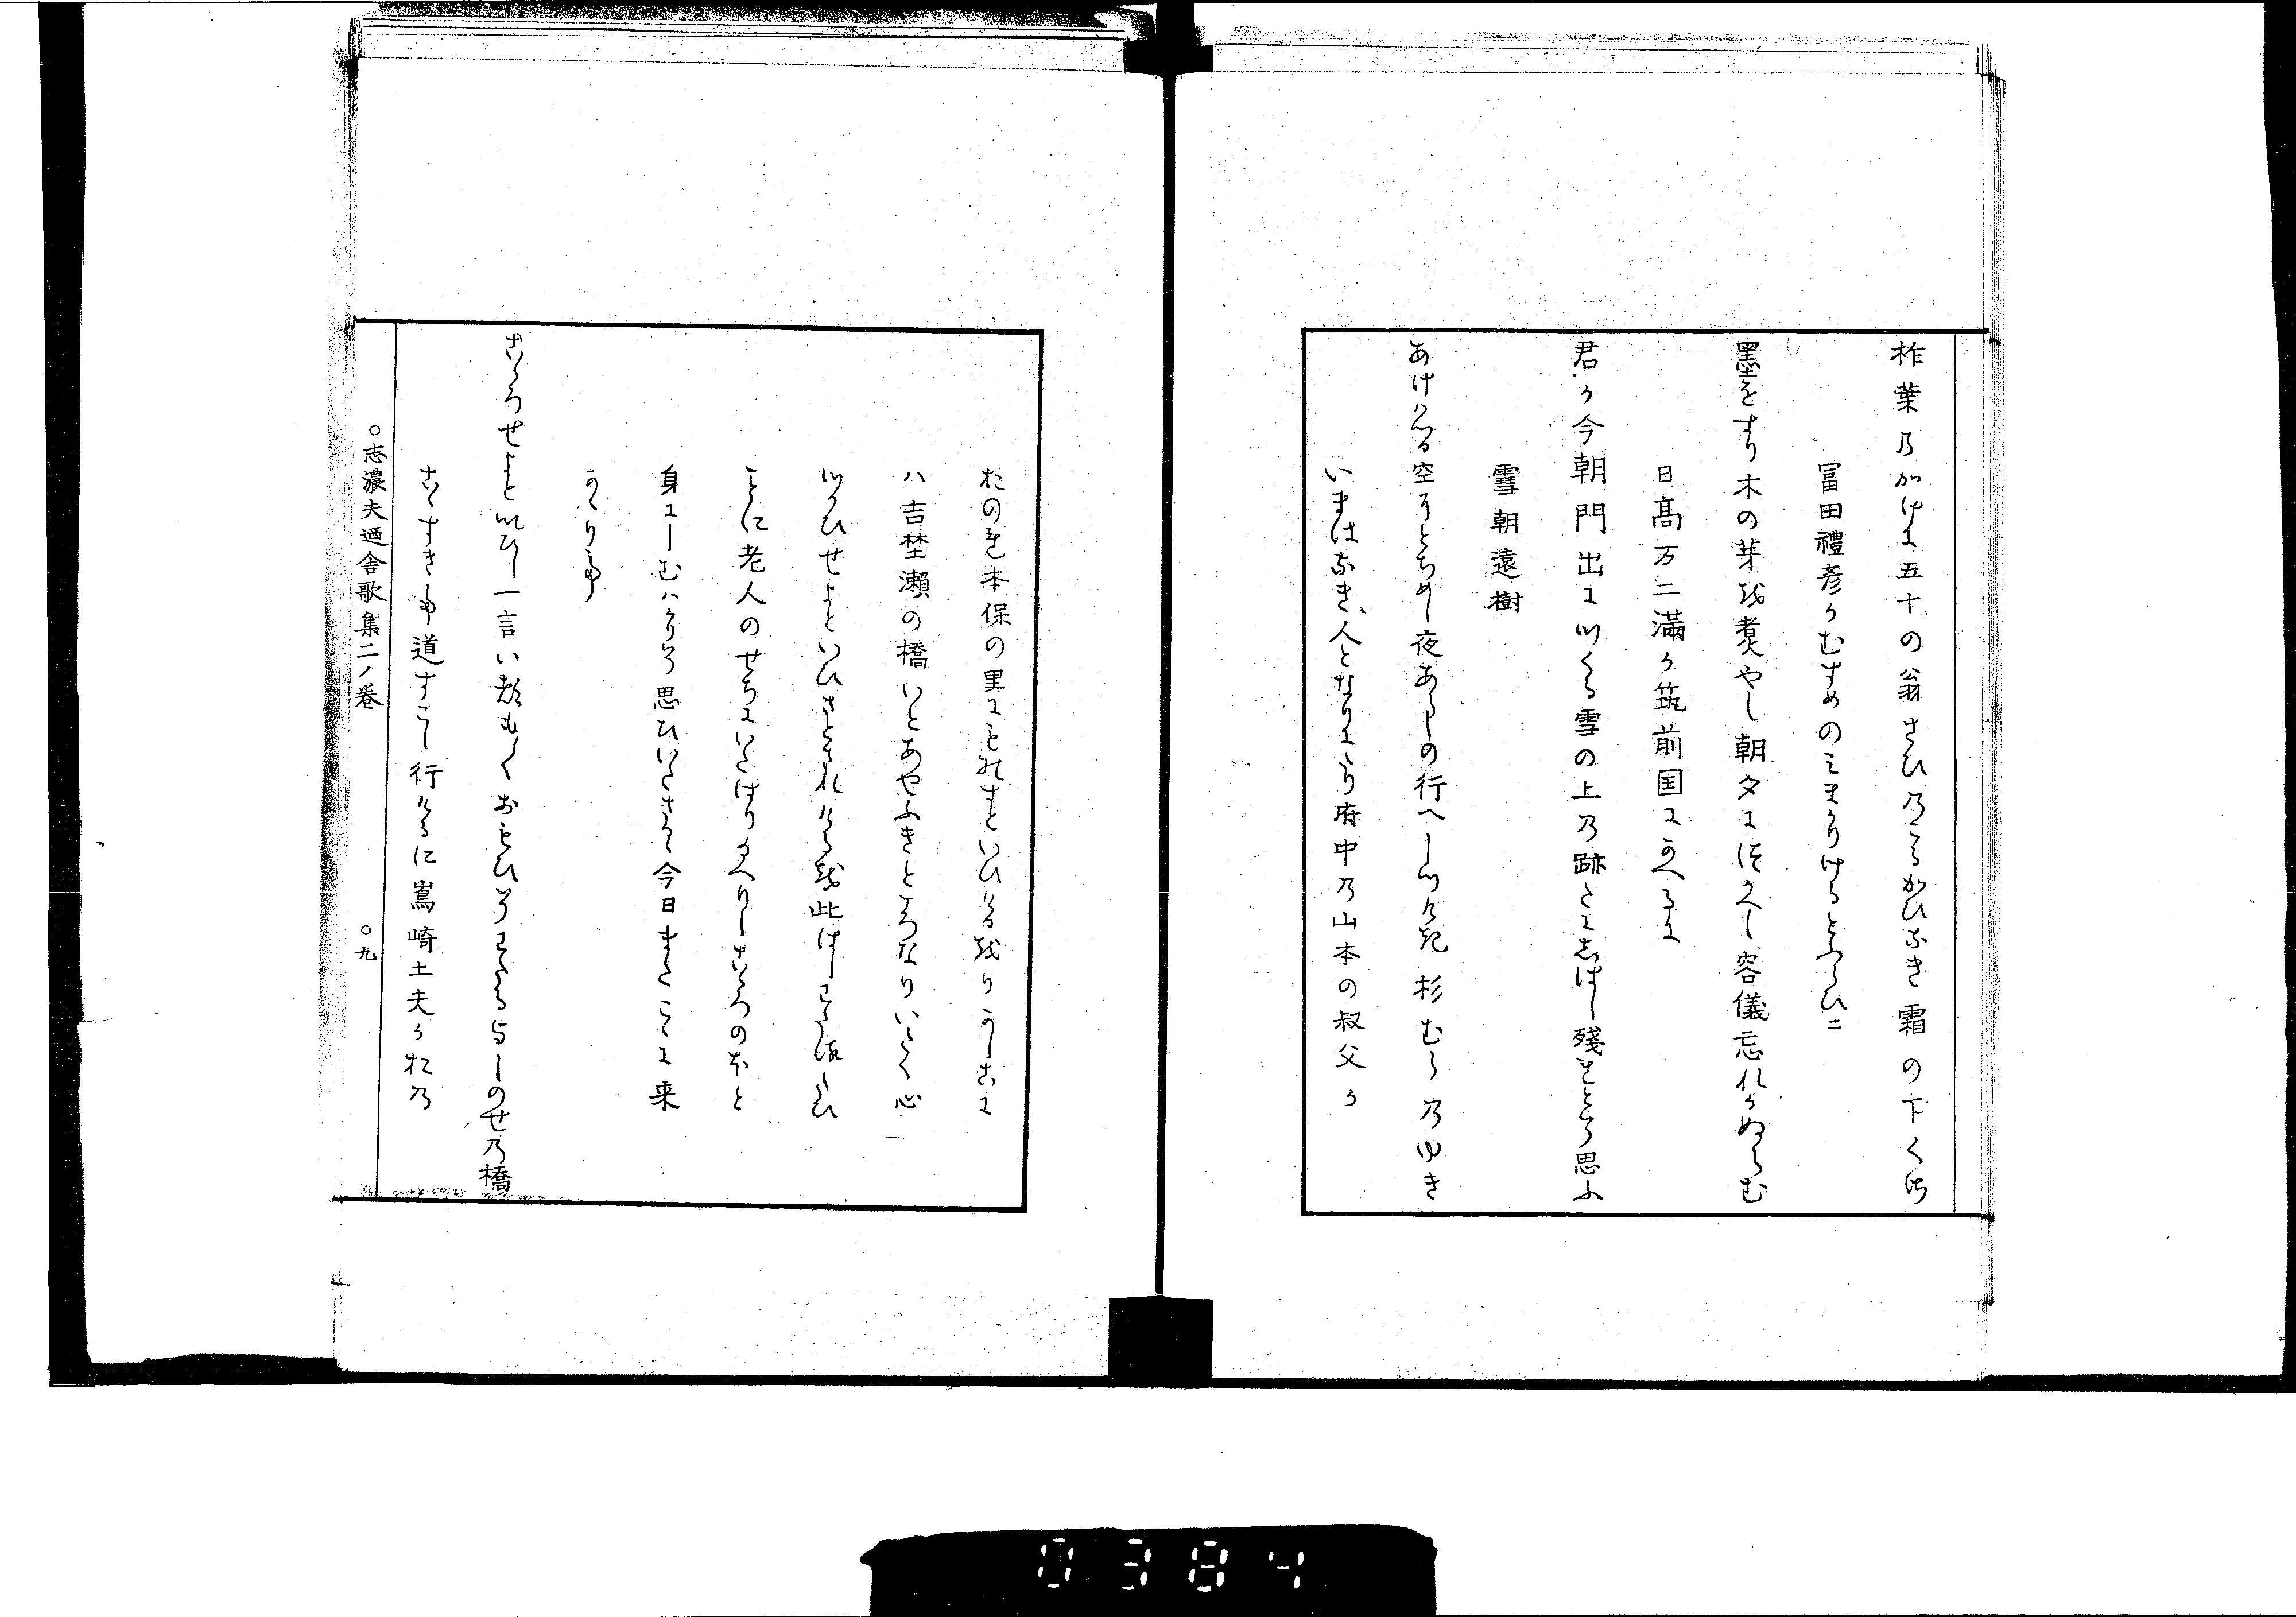 柞葉乃かけに五十の翁さひ乃こるかひなき霜の下くち
冨田禮彦かむすめのみまかりけるとふらひニ
墨をすり木の芽を煮やし朝夕につかへし容儀忘れかぬらむ
日髙万二滿か筑前国にかへるに
君か今朝門出につくる雪の上乃跡たにしはし殘をとそ思ふ
雪朝遠樹
あけける空にとちめし夜あらしの行へしつけき杉むら乃ゆき
いまはなき人となりにたり府中乃山本の叔父か
おのを本保の里にものすといひけるをりかしこに
ハ吉埜瀬の橋いとあやふきところなりいたく心
つかひせよといひさとされけるを此はしわたるたひ
ことに老人のせちにいたはりかへりしこゝろのほと
身にしむはかりそ思ひいたさるゝ今日またこゝに来
かゝりて
こゝろせよといひし一言い頭もしくおもひそわたるよしのせ乃橋
こゝすきて道すこし行けるに嶌崎土夫か於乃
○志濃夫廼舎歌集二ノ巻 ○九
0384